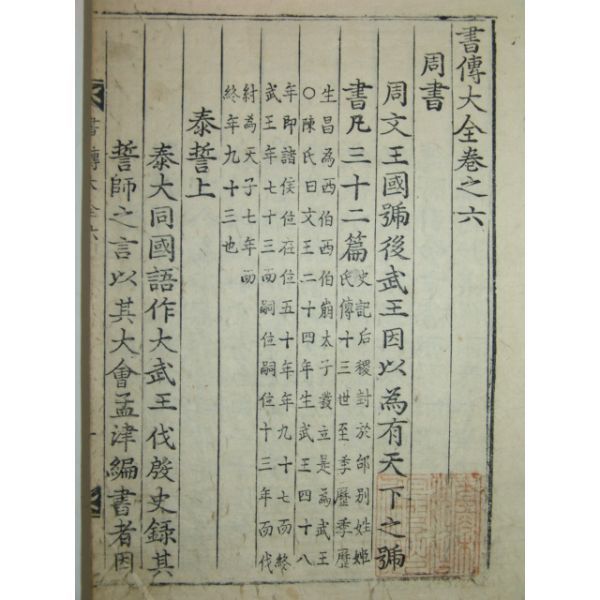 書傳大全卷之六
周書
周文王國號後武王因以為有天下之號
書凡三十二篇
史記后稷封於邰別姓姬
氏傳十三世至季歷季歷
生昌為西伯西伯崩太子發立是為武王
○陳氏曰文王二十四年生武王四十八
年即諸侯位在位五十年年九十七而終
武王年七十三而嗣位嗣位十三年而伐
紂為天子七年而
終年九十三也
泰誓上
泰大同國語作大武王伐殷史錄其
誓師之言以其大會孟津編書者因
書傳大全六